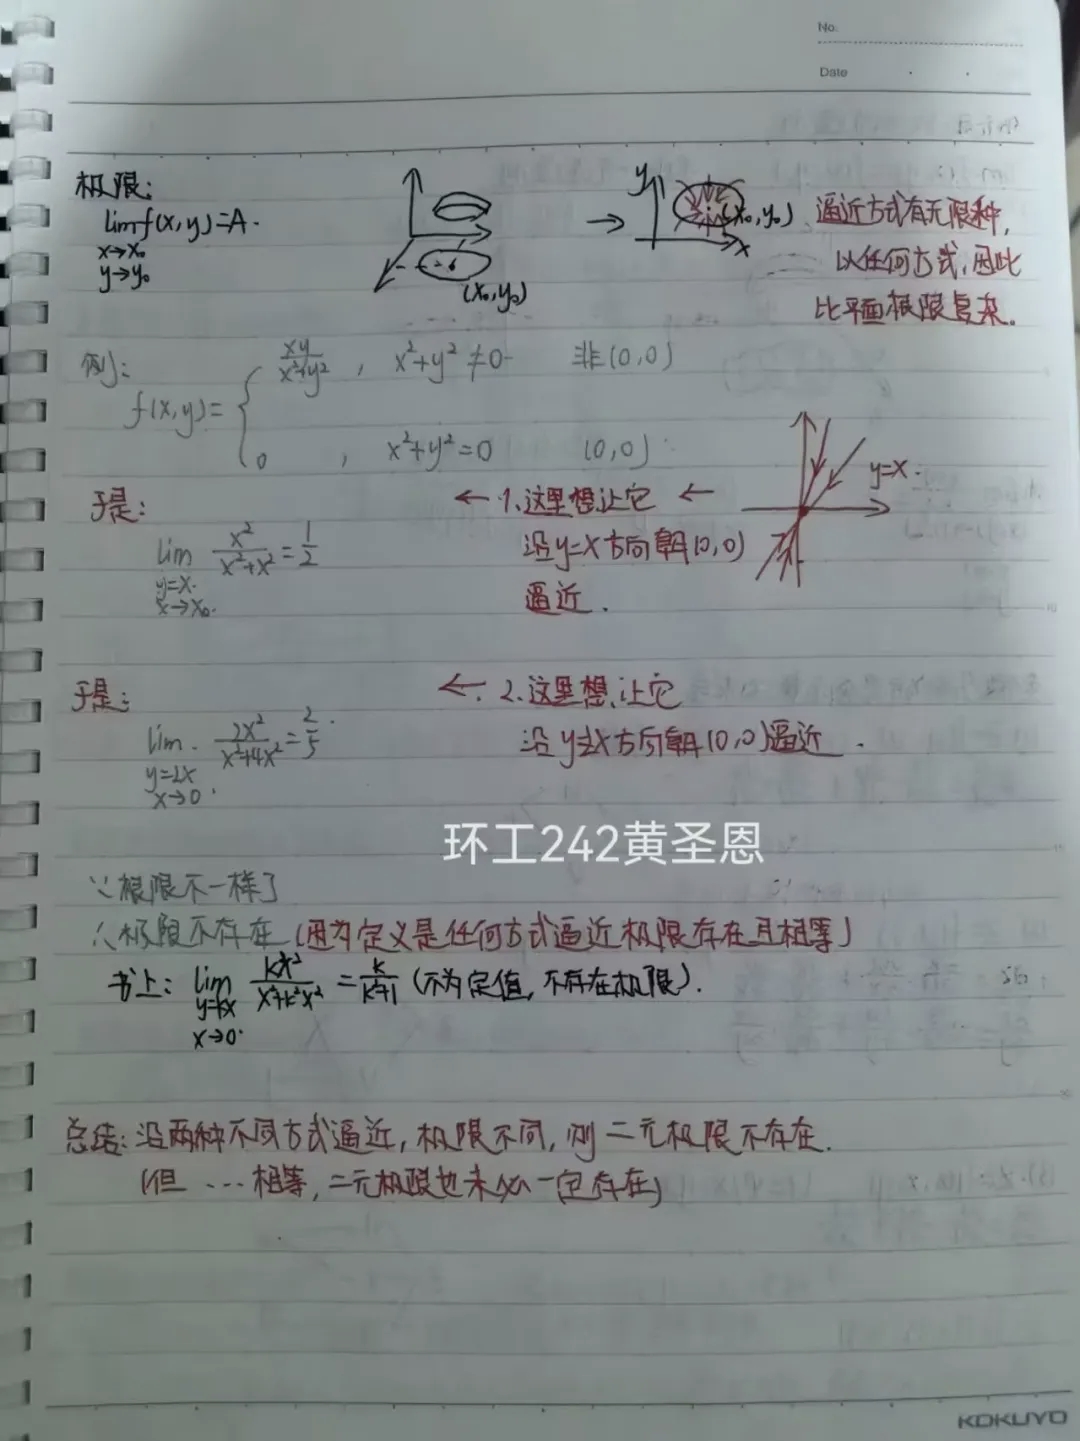 No.
Date
极限:
lim f(x,y)=A.
x→x₀
y→y₀
(x₀,y₀)
y
x
(x₀,y₀)
逼近方式有无限种,
以任何方式,因此
比平面极限复杂.
例:
f(x,y)={ xy/(x²+y²) , x²+y²≠0 非(0,0)
0 , x²+y²=0 (0,0)
y=x.
于是:
lim x²/(x²+x²)=1/2
y=x.
x→x₀.
← 1.这里想让它 ←
沿y=x方向朝(0,0)
逼近.
于是:
lim. 2x²/(x²+4x²)=2/5
y=2x
x→0.
← 2.这里想让它
沿y=2x方向朝(0,0)逼近.
环工242黄圣恩
∵极限不一样了
∴极限不存在(因为定义是任何方式逼近极限存在且相等)
书上: lim kx²/(x²+k²x²) = k/(k²+1) (不为定值,不存在极限).
y=kx
x→0.
总结:沿两种不同方式逼近,极限不同,则二元极限不存在.
(但…相等,二元极限也未必一定存在)
KOKUYO